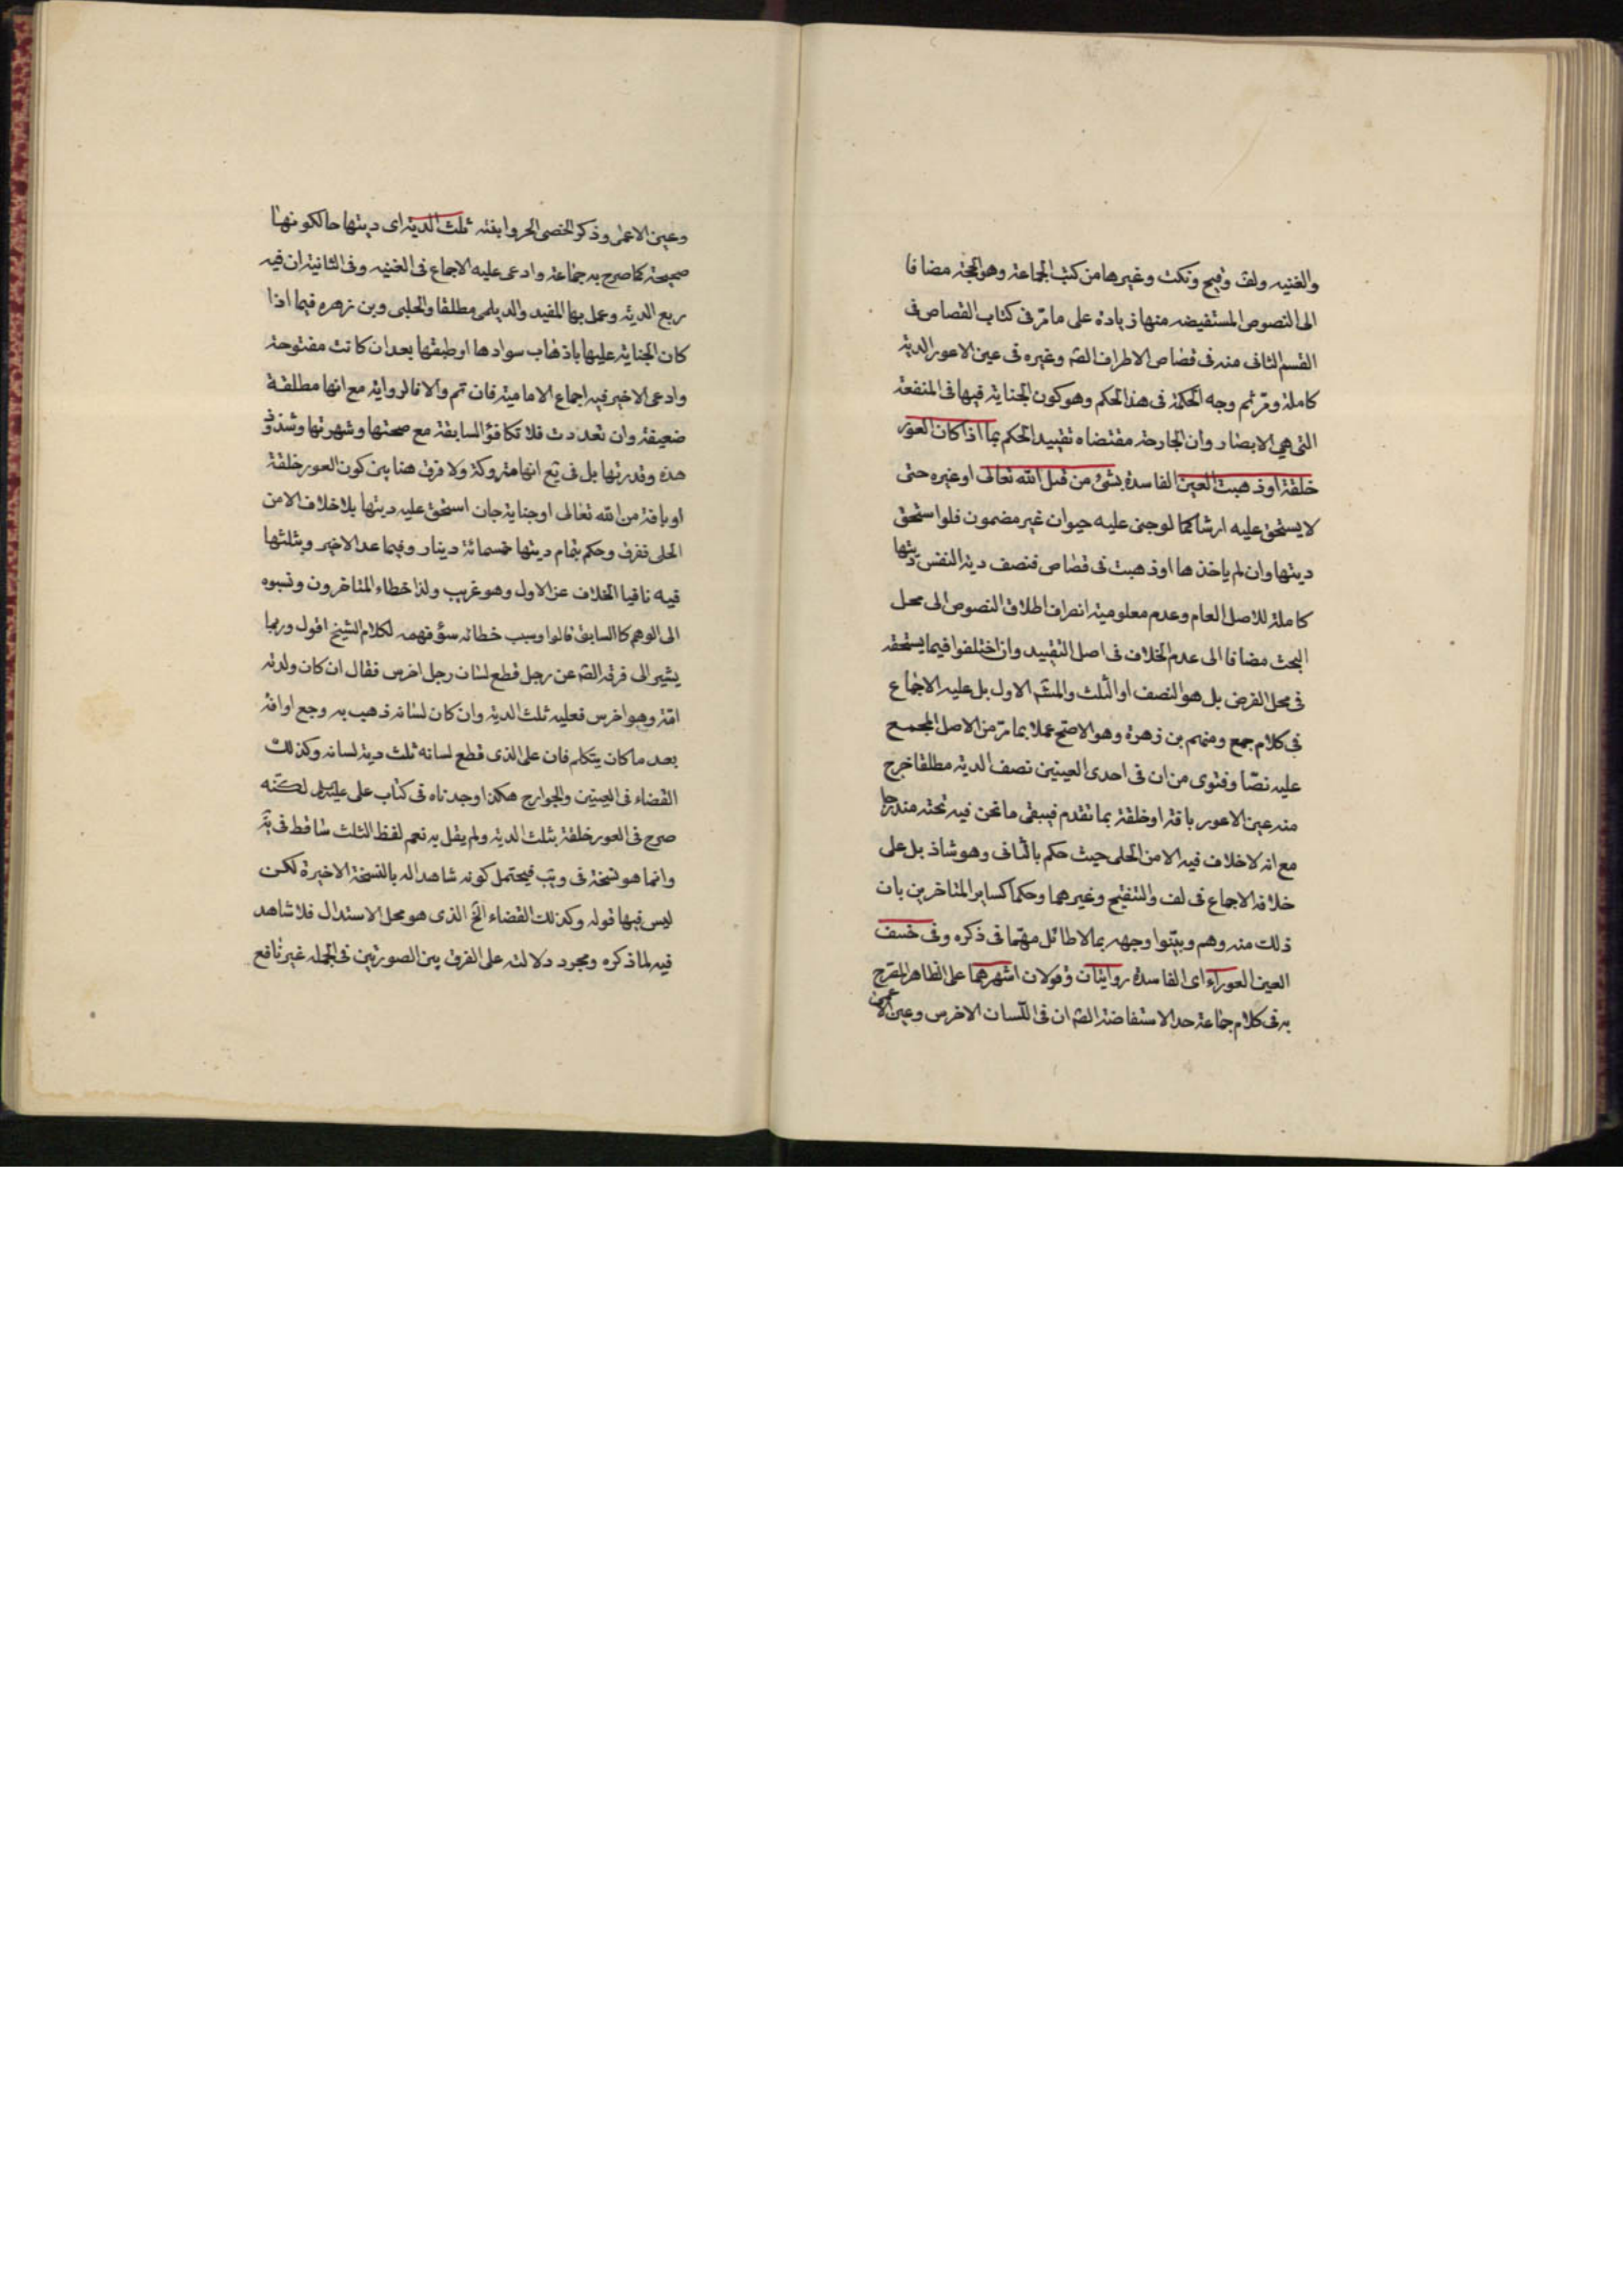 والغنيه ولف وقيح ونكت وغيرها من كتب الجماعة وهو الحجة مضافا
الى النصوص المستفيضه منها زيادة على ما مر فى كتاب القصاص فى
القسم الثانى منه فى قصاص الاطراف الصه وغيره فى عين الاعور الدية
كاملة ومر ثم وجه الحكمة فى هذا الحكم وهو كون الجناية فيها فى المنفعة
التى هى الابصار وان الجارحة مقتضاه تقييد الحكم بما اذا كان العور
خلقة او ذهبت العين الفاسدة بشئ من قبل الله تعالى او غيره حتى
لا يستحق عليه ارشا كما لو جنى عليه حيوان غير مضمون فلو استحق
ديتها وان لم ياخذها او ذهبت فى قصاص فنصف دية النفس ديتها
كاملة للاصل العام وعدم معلومية انصراف اطلاق النصوص الى محل
البحث مضافا الى عدم الخلاف فى اصل التقييد وان اختلفوا فيما يستحقه
فى محل الفرض بل هو النصف او الثلث والمشه الاول بل عليه الاجماع
فى كلام جمع ومنهم بن زهرة وهو الاصح عملا بما مر من الاصل المجمع
عليه نصا وفتوى من ان فى احدى العينين نصف الدية مطلقا خرج
منه عين الاعور بافة او خلقة بما تقدم فيبقى ما نحن فيه تحته مندرجا
مع انه لا خلاف فيه الا من الحلى حيث حكم بالثانى وهو شاذ بل على
خلافه الاجماع فى لف والتنقيح وغيرهما وحكما كساير المتاخرين بان
ذلك منه وهم وبينوا وجهه بما لا طائل مهما فى ذكره وفى خسف
العين العوراء اى الفاسدة روايتان وقولان اشهرهما على الظاهر المصرح
به فى كلام جماعة حد الاستفاضة الصه ان فى اللسان الاخرس وعين الاعمى
وعين الاعمى وذكر الخصى الحر وابنته ثلث الدية اى ديتها حالكونها
صحيحة كما صرح به جماعة وادعى عليه الاجماع فى الغنيه وفى الثانية ان فيه
ربع الدية وعمل بها المفيد والديلمى مطلقا والحلبى وبن زهره فيما اذا
كان الجناية عليها باذهاب سوادها او طبقها بعد ان كانت مفتوحة
وادعى الاخير فيه اجماع الامامية فان تم والا فالرواية مع انها مطلقة
ضعيفة وان تعددت فلا تكافؤ السابقة مع صحتها وشهرتها وشذوذ
هذه وقدرتها بل فى يع انها متروكة ولا فرق هنا بين كون العور خلقة
او بافة من الله تعالى او جناية جان استحق عليه ديتها بلا خلاف الا من
الحلى ففرق وحكم بتمام ديتها خمسمائة دينار وفيما عدا الاخير وبثلثها
فيه نافيا الخلاف عن الاول وهو غريب ولذا خطاء المتاخرون ونسبوه
الى الوهم كالسابق قالوا وسبب خطائه سؤ فهمه لكلام الشيخ اقول وربما
يشير الى فرقه الصه عن رجل قطع لسان رجل اخرس فقال ان كان ولدته
امه وهو اخرس فعليه ثلث الدية وان كان لسانه ذهب به وجع او افة
بعد ما كان يتكلم فان على الذى قطع لسانه ثلث دية لسانه وكذلك
القضاء فى العينين والجوارح هكذا وجدناه فى كتاب على عليه السلام لكنه
صرح فى العور خلقة بثلث الدية ولم يقل به نعم لفظ الثلث ساقط فى يه
وانما هو نسخة فى ويب فيحتمل كونه شاهدا له بالنسخة الاخيرة لكن
ليس فيها قوله وكذلك القضاء الخ الذى هو محل الاستدلال فلا شاهد
فيه لما ذكره ومجرد دلالته على الفرق بين الصورتين فى الجمله غير نافع